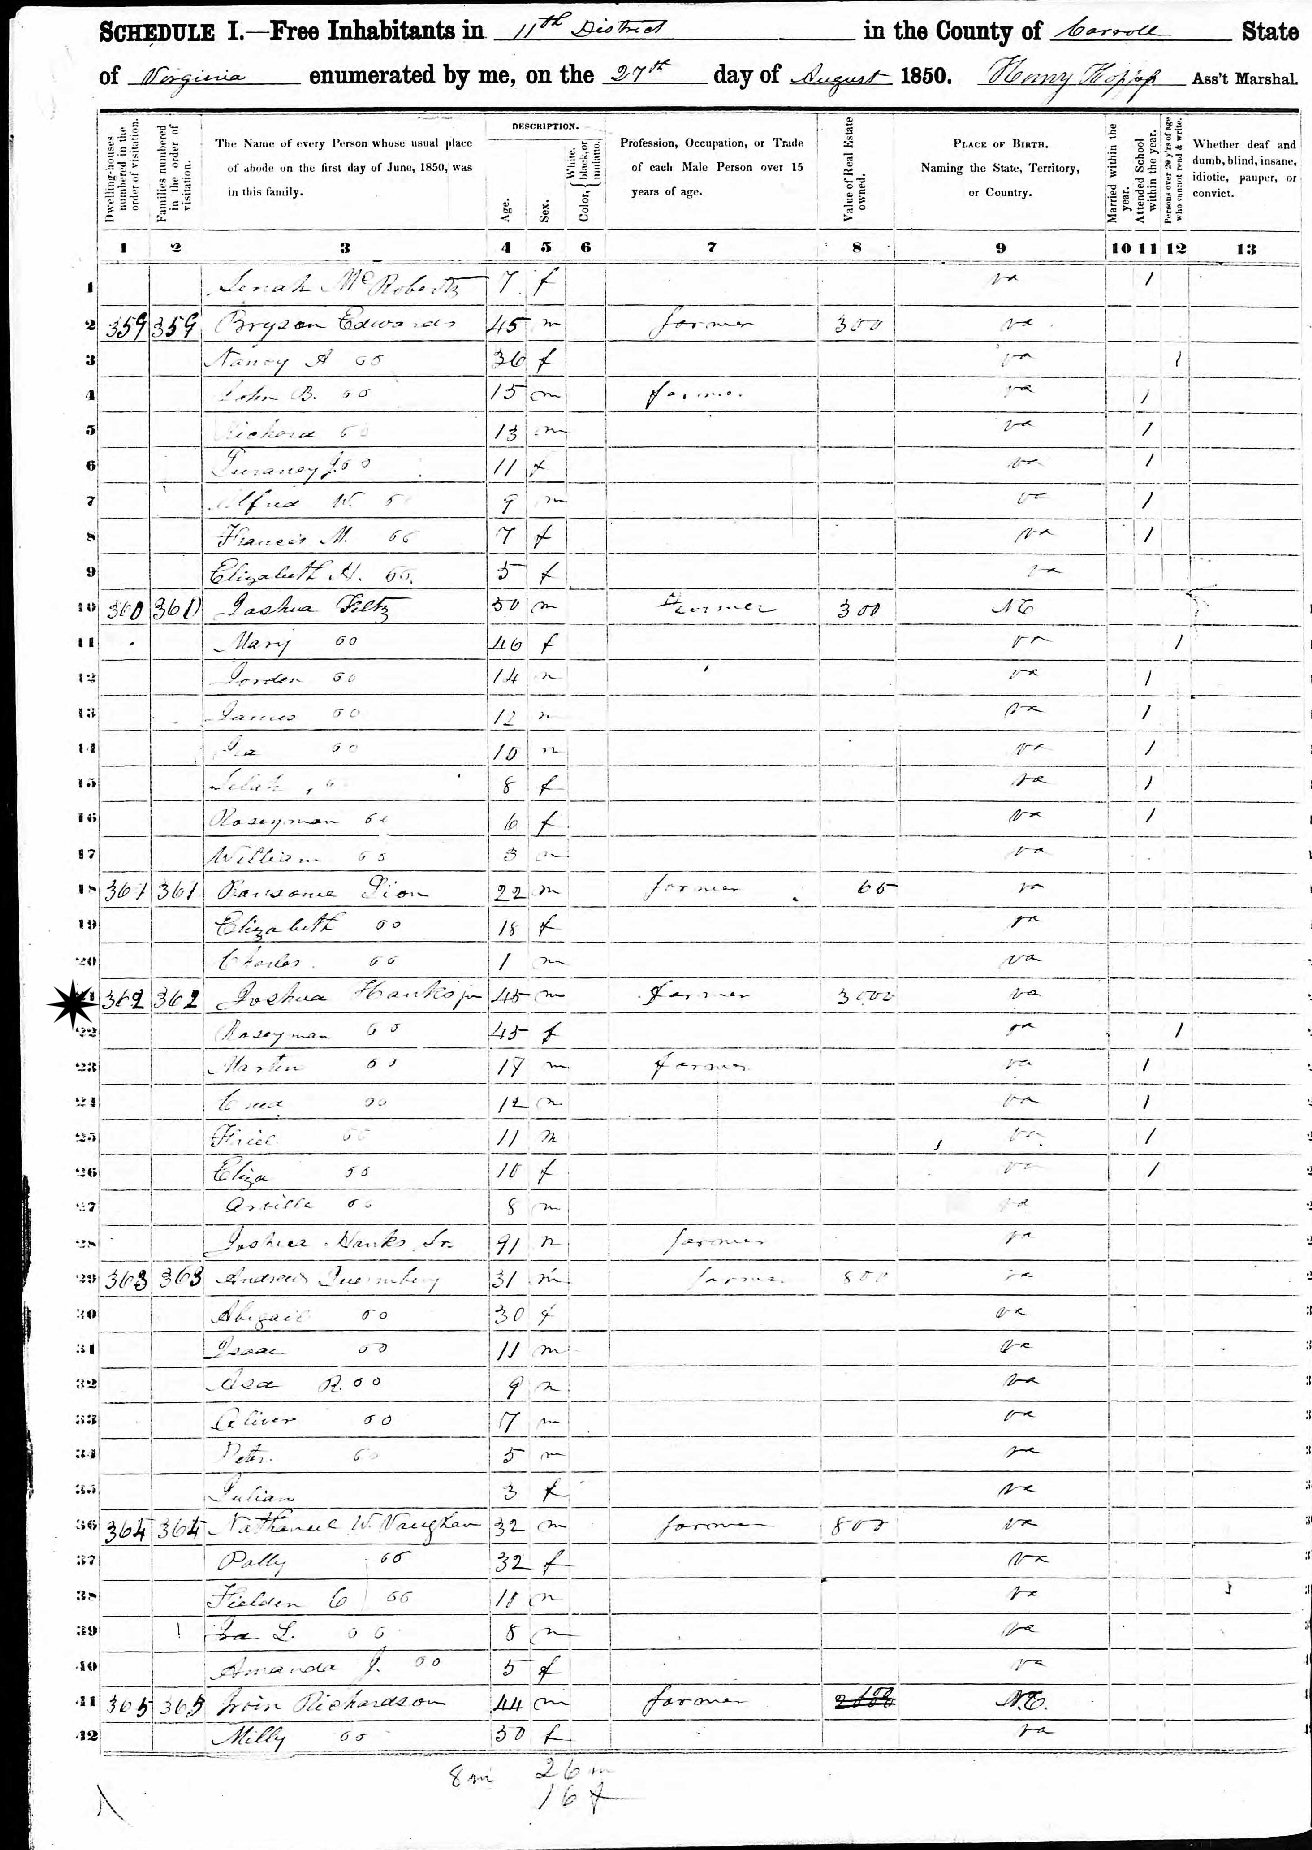 SCHEDULE I.—Free Inhabitants in 11th District in the County of Carroll State
of Virginia enumerated by me, on the 27th day of August 1850. Henry Ass't Marshal.
Dwelling-houses numbered in the order of visitation.
Families numbered in the order of visitation.
The Name of every Person whose usual place of abode on the first day of June, 1850, was in this family.
DESCRIPTION.
Age.
Sex.
Color, { White, black, or mulatto.
Profession, Occupation, or Trade of each Male Person over 15 years of age.
Value of Real Estate owned.
PLACE OF BIRTH. Naming the State, Territory, or Country.
Married within the year.
Attended School within the year.
Persons over 20 y'rs of age who cannot read & write.
Whether deaf and dumb, blind, insane, idiotic, pauper, or convict.
1 2 3 4 5 6 7 8 9 10 11 12 13
1 McRoberts 7 f va 1
2 359 359 Bryson Edwards 45 m farmer 300 va
3 Nancy A do 36 f va 1
4 John B. do 15 m farmer va 1
5 Richard do 13 m va 1
6 do 11 f va 1
7 Alfred W. do 9 m va 1
8 Francis M. do 7 f va 1
9 Elizabeth A. do. 5 f va
10 360 360 Joshua Feltz 50 m farmer 300 NC
11 Mary do 46 f va 1
12 Jorden do 14 m va 1
13 James do 12 m va 1
14 Ira do 10 m va 1
15 do 8 f va 1
16 Roseyman do 6 f va 1
17 William do 3 m va
18 361 361 Ransome Lion 22 m farmer 65 va
19 Elizabeth do 18 f va
20 Charles do 1 m va
21 362 362 Joshua Hanks jr 45 m farmer 3000 va
22 Roseyman do 45 f va 1
23 Martin do 17 m farmer va 1
24 do 12 m va 1
25 do 11 m va 1
26 Eliza do 10 f va 1
27 Orville do 8 m va
28 Joshua Hanks Sr. 91 m farmer va
29 363 363 Andrew 31 m farmer 800 va
30 Abigail do 30 f va
31 Isaac do 11 m va
32 Asa R. do 9 m va
33 Oliver do 7 m va
34 Peter do 5 m va
35 Julian 3 f va
36 364 364 Nathaniel W. Vaughan 32 m farmer 800 va
37 Polly do 32 f va
38 Fielden C do 10 m va
39 Ira L. do 8 m va
40 Amanda J. do 5 f va
41 365 365 Irvin Richardson 44 m farmer N.C.
42 Milly do 50 f va
8m 26 m
16 f